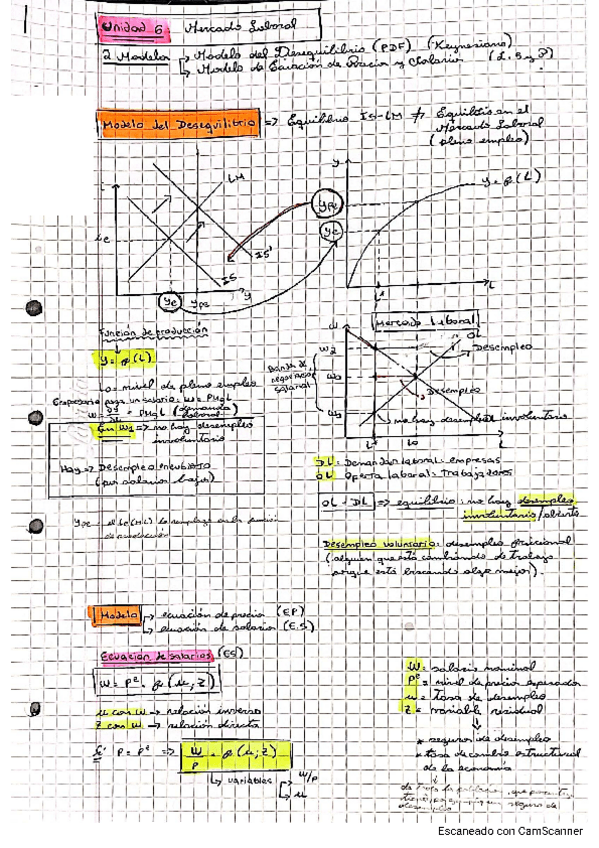 Unidad 6 Mercado Laboral
2 Modelos → Modelo del Desequilibrio (PDF) (Keynesiano)
→ Modelo de Ecuación de Precios y Salarios
Modelo del Desequilibrio => Equilibrio IS-LM ≠ Equilibrio en el
Mercado Laboral
(pleno empleo)
i
LM
IS'
IS
ye
ype
y
y
ype
ye
y=f(L)
L
Función de producción
y=f(L)
Lo= nivel de pleno empleo
Empresario paga un salario: W= PMgL
= PMgL (demanda
laboral)
En W1 => no hay desempleo
involuntario
Hay => Desempleo encubierto
(por salarios bajos)
Mercado Laboral
W
OL
Desempleo
W2
Banda de
negociación
salarial
Desempleo
no hay desempleo involuntario
L
DL: Demanda laboral: empresas
OL: Oferta laboral: trabajadores
OL = DL => equilibrio: no hay desempleo
involuntario/abierto
Desempleo voluntario: desempleo friccional
(alguien que está cambiando de trabajo
porque está buscando algo mejor).
Modelo → ecuación de precio (EP)
→ ecuación de salario (E.S)
Ecuación de salarios (ES)
W = Pe . f (u, z)
u con W → relación inverso
z con W → relación directa
Si P = Pe => W/P = f (u; z)
↳ variables → W/P
→ u
W= salario nominal
Pe = nivel de precio esperado
u = tasa de desempleo
z = variable residual
* seguros de desempleo
* tasa de cambio estructural
de la economía
Escaneado con CamScanner